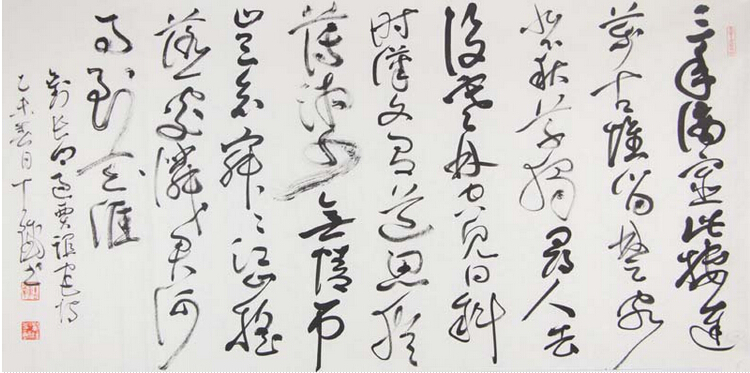 三年謫宦此棲遲
萬古惟留楚客
悲秋草獨尋人去
後寒林空見日斜
時漢文有道恩猶
薄湘水無情吊
豈知寂寂江山搖
落處憐君何
事到天涯
劉長卿過賈誼宅詩
乙未春月